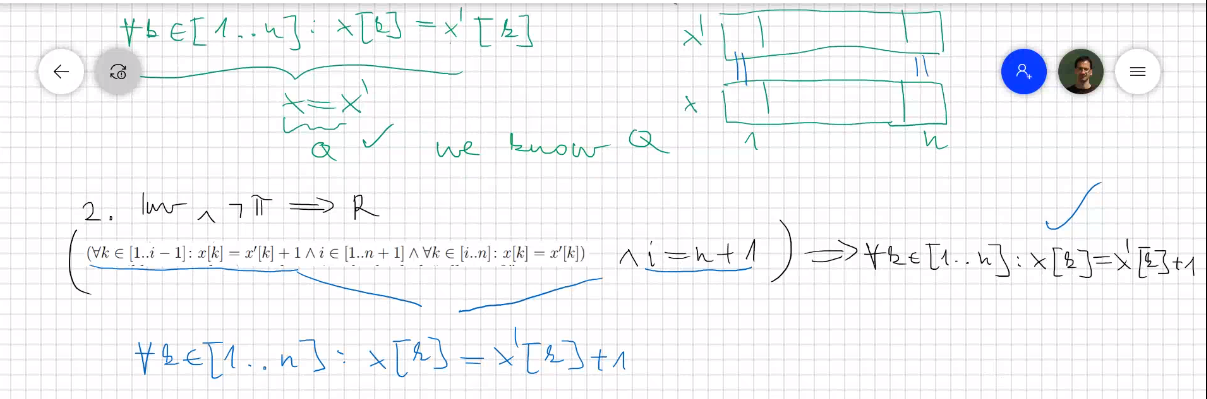 ∀k ∈ [1..n] : x[k] = x'[k]
x'
x = x'
x
Q ✓ we know Q
1 n
2. Inv ∧ ¬π ⇒ R
( (∀k ∈ [1..i − 1]: x[k] = x′[k] + 1 ∧ i ∈ [1..n + 1] ∧ ∀k ∈ [i..n]: x[k] = x′[k]) ∧ i = n + 1 ) ⇒ ∀k ∈ [1..n] : x[k] = x'[k] + 1 ✓
∀k ∈ [1..n] : x[k] = x'[k] + 1